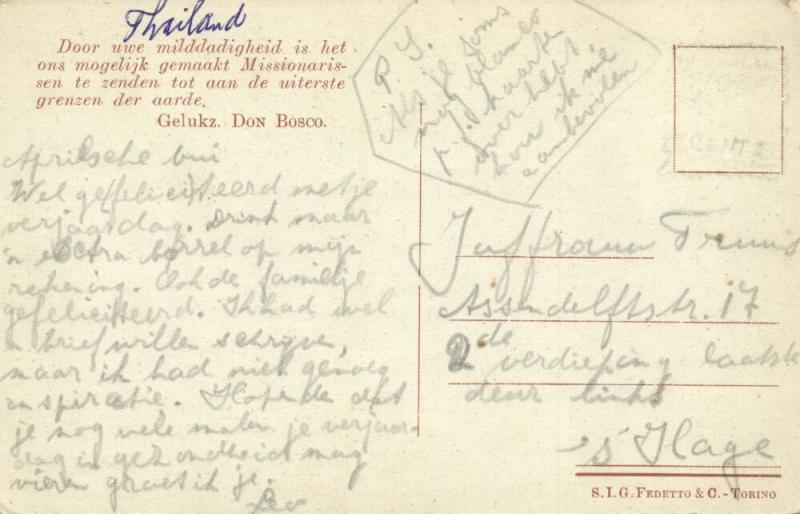 Thailand
Door uwe milddadigheid is het
ons mogelijk gemaakt Missionaris-
sen te zenden tot aan de uiterste
grenzen der aarde.
Gelukz. DON BOSCO.
Aprilsche bui
Wel gefeliciteerd met je
verjaardag. Drink maar
'n extra borrel op mijn
rekening. Ook de familie
gefeliciteerd. Ik had wel
'n brief willen schrijven,
maar ik had niet genoeg
inspiratie. Hopende dat
je nog vele malen je verjaar-
dag in gezondheid mag
vieren groet ik je.
Leo
P.S.
Als je soms
nog blanco
kaarten
over hebt
hou ik me
aanbevolen
CENT
Juffrouw Truus
Assendelftstr. 17
2de verdieping laatste
deur links
's Hage
S.I.G. FEDETTO & C. - TORINO